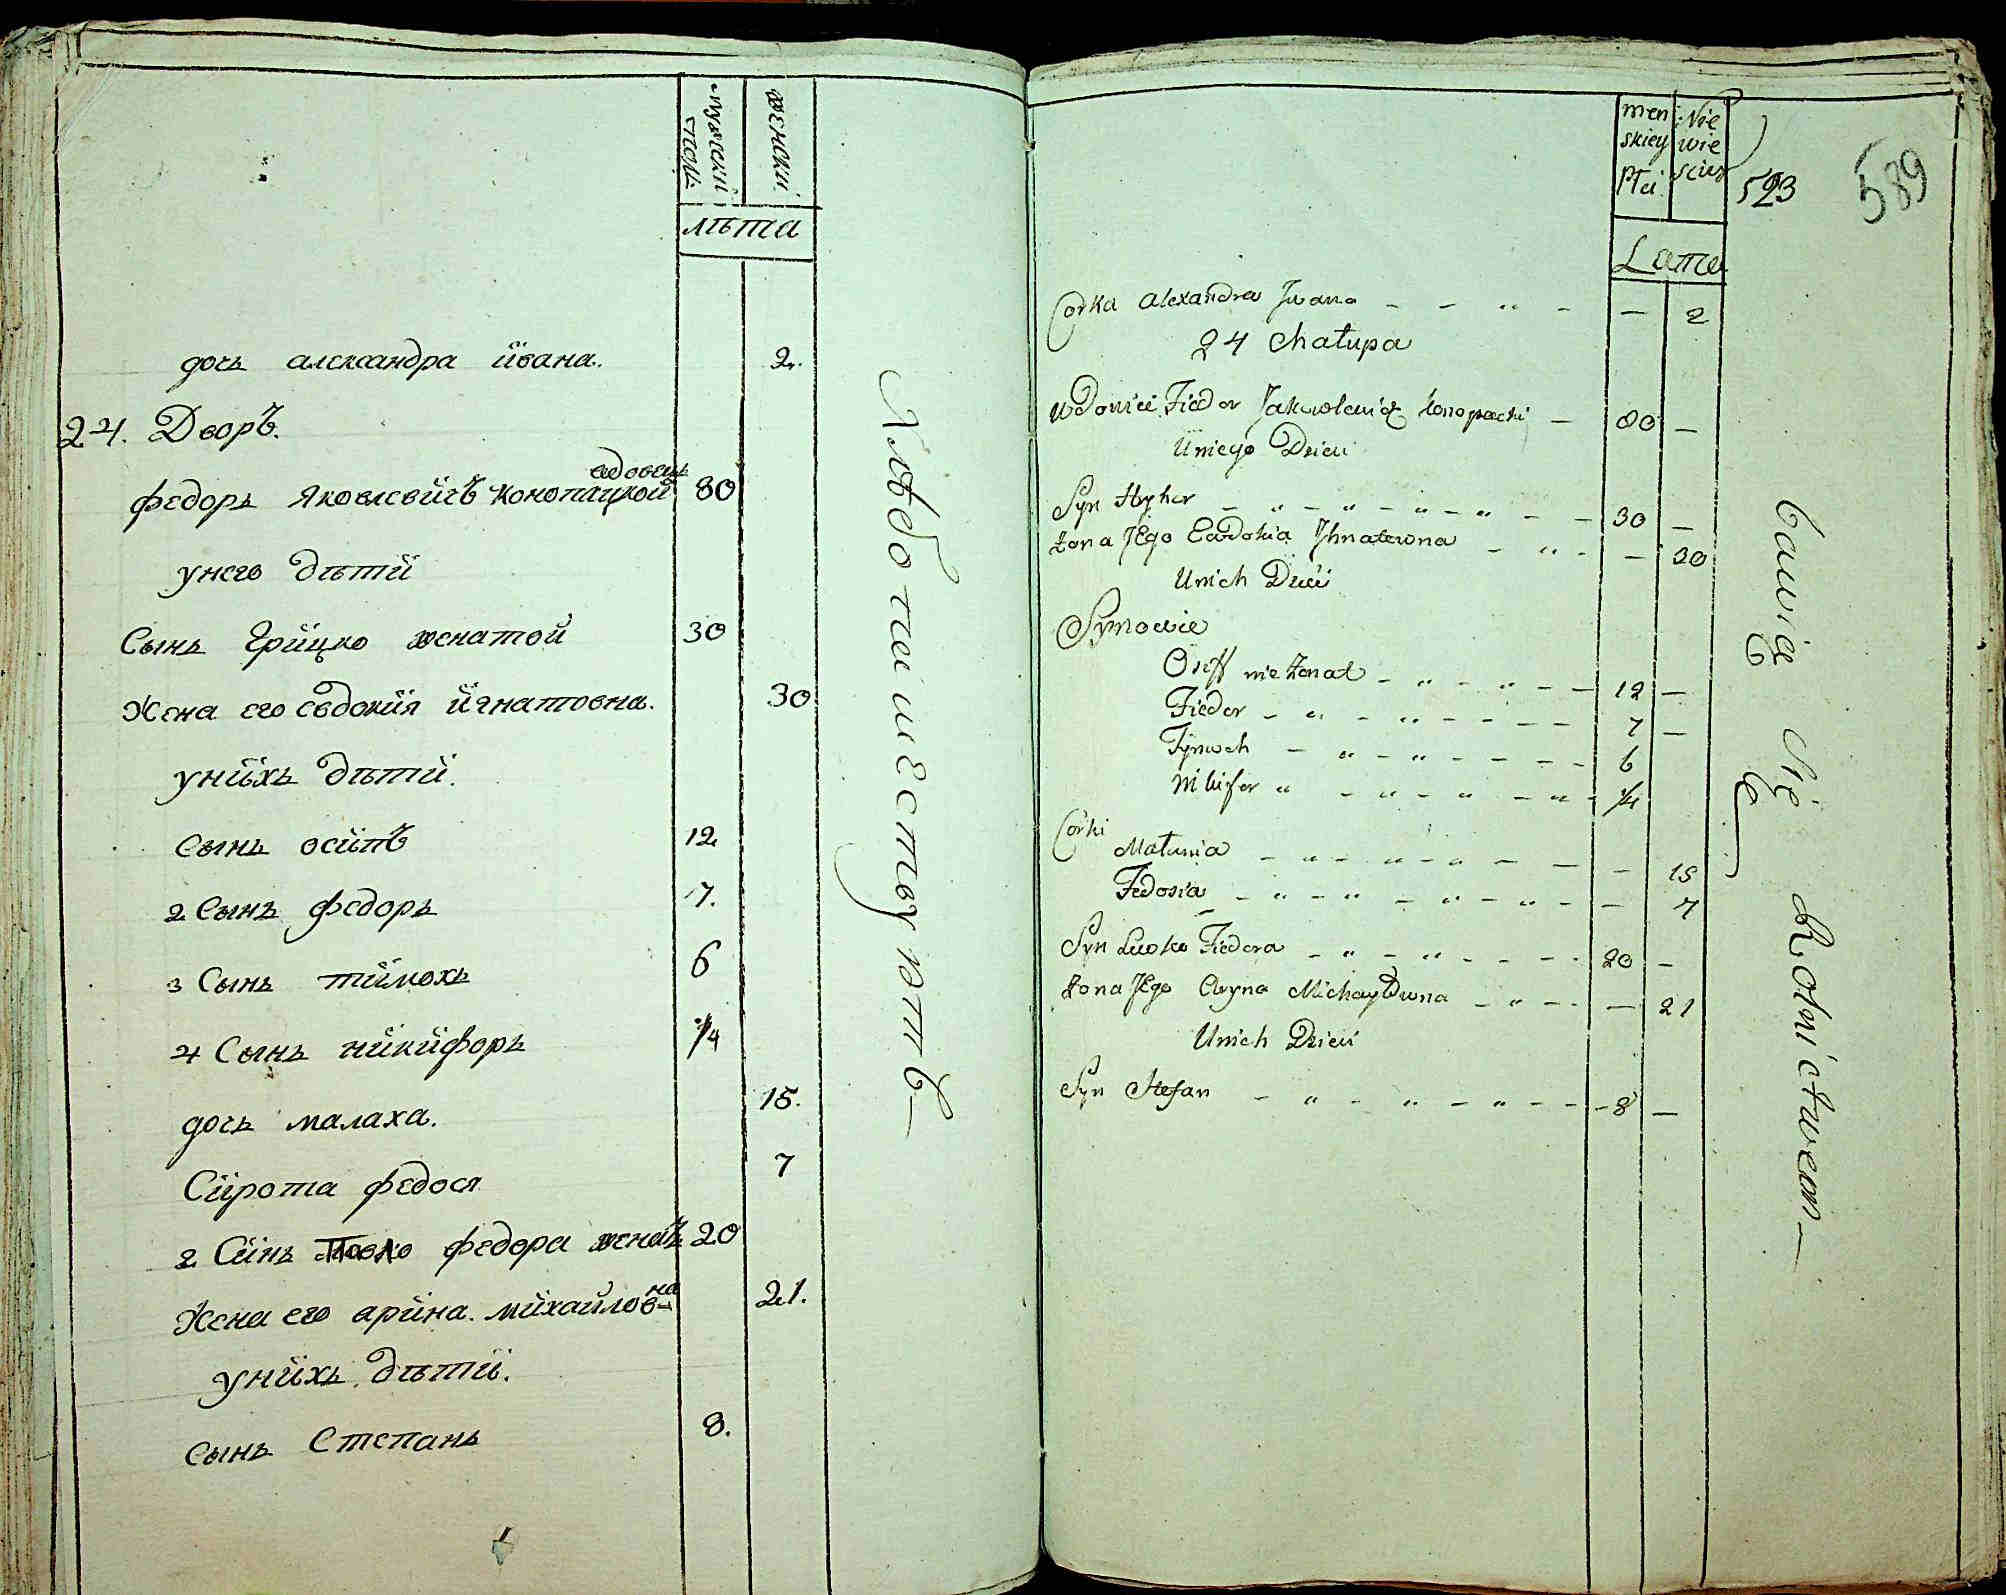 мужескїй
полъ
женскїй
лѣта
дочь александра йвана. 2.
24. Дворъ.
вдовецъ
федоръ Яковлевичъ конопацкой 80
унего дѣтй
Сынъ Грйцко женатой 30
Жена его евдокйя йгнатовна. 30
унйхъ дѣтй.
Сынъ осйпъ 12
2 Сынъ федоръ 7.
3 Сынъ тймохъ 6
4 Сынъ нйкйфоръ 1/4
дочь малаха. 15.
Сйрота федося 7
2 Сйнъ федора женатъ 20
Жена его арйна. мйхайловна 21.
унйхъ дѣтй.
Сынъ Степанъ 8.
Хлѣбопашествуютъ
men
skiey
Płci
Nie
wie
sciey
523
589
Lata
Corka Alexandra Jwana - - " - - 2
24 Chałupa
Wdowiec Fiedor Jakowlewicz Konopacki - 80 -
Uniego Dzieci
Syn Hryhor - " - " - " - " - - 30 -
Żona Jego Eudokia Jhnatewna - " - - 30
Unich Dzieci
Synowie
Osiff nie żonat - " - " - - 12 -
Fiedor - " - " - - - - 7 -
Tymoch - " - " - - - - 6
Mikifor " - " - " - " - 1/4
Corki
Małania - " - " - " - - - 15
Fedosia - - " - " - " - " - - 7
Syn Lewko Fiedora - " - " - - - 20 -
Żona Jego Aryna Michayłowna - " - - - 21
Unich Dzieci
Syn Stefan - " - " - " - - - 8 -
Bawią się Rolnictwem